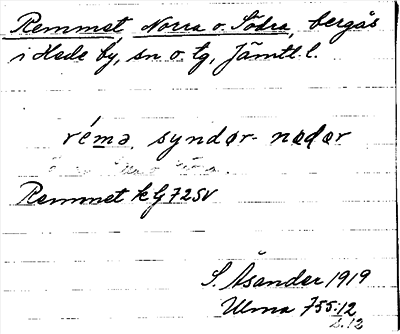 Remmet, Norra o. Södra, bergås
i Hede by, sn o. tg, Jämtl. l.
rémə. syndər- nødər
Remmet k G 72 SV
S. Åsander 1919
Ulma 755:12
S. 12